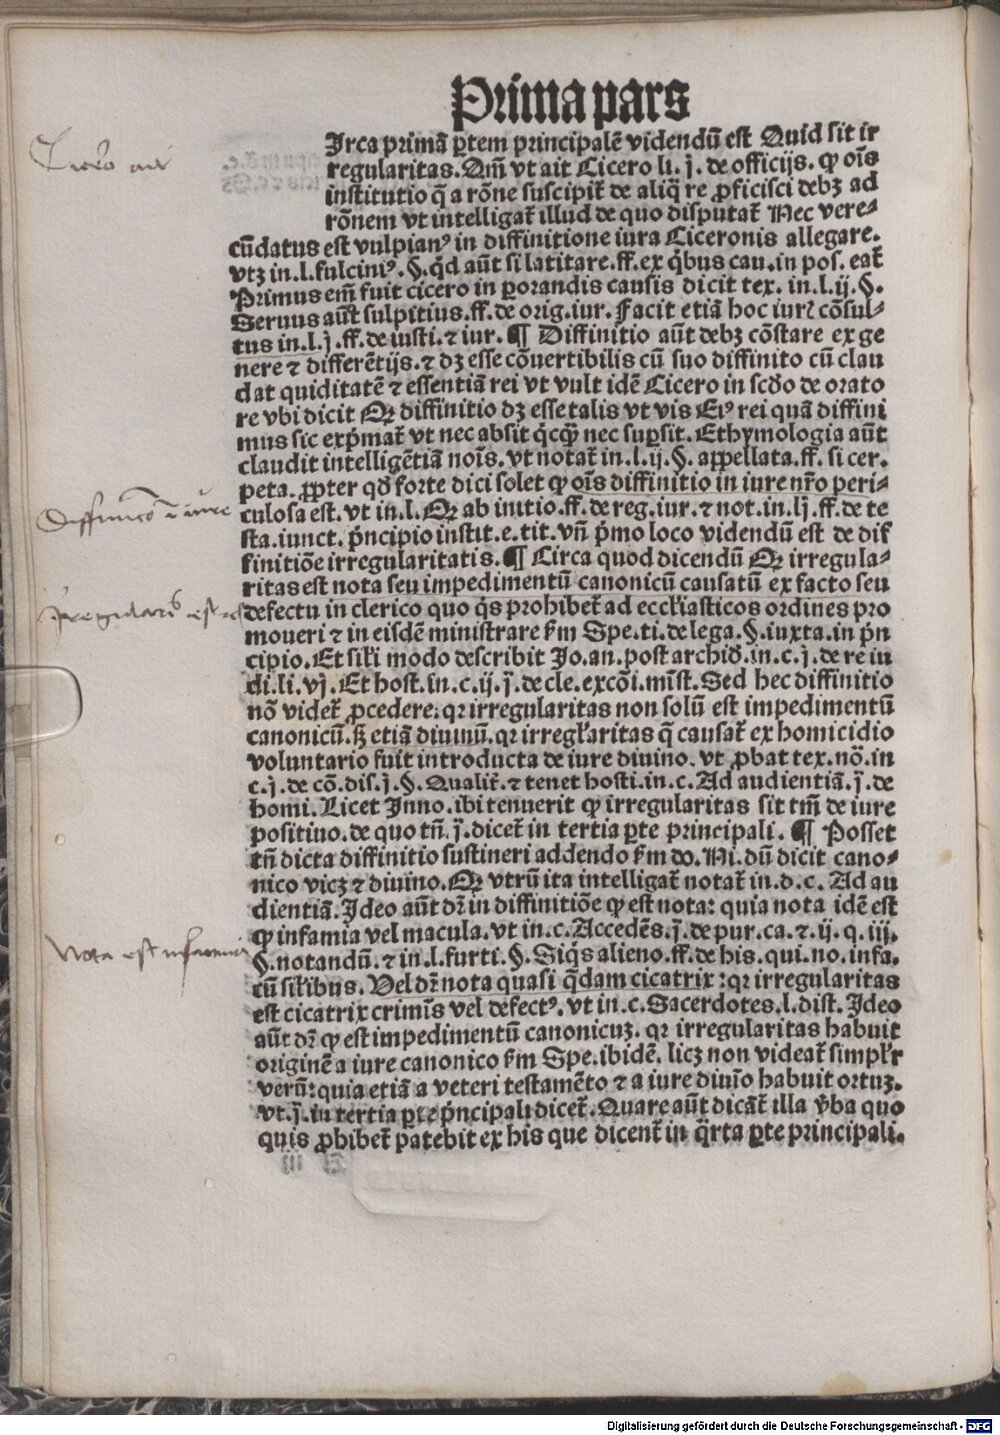 Prima pars
Irca primā ꝑtem principalē videndū est Quid sit ir
regularitas. Qm̄ vt ait Cicero li. j. de officijs. ꝙ oīs
institutio q̄ a rōne suscipit᷑ de aliq̄ re ꝓficisci debꝫ ad
rōnem vt intelligat᷑ illud de quo disputat᷑ Nec vere⸗
cūdatus est vulpianꝰ in diffinitione iura Ciceronis allegare.
vtꝫ in. l. fulciniꝰ. §. qͥd aūt si latitare. ff. ex qͥbus cau. in pos. eat᷑
Primus em̄ fuit cicero in ꝑorandis causis dicit tex. in. l. ij. §.
Seruus aūt sulpitius. ff. de orig. iur. Facit etiā hoc iurꝭ cōsul⸗
tus in. l. j. ff. de iusti. ⁊ iur. ¶ Diffinitio aūt debꝫ cōstare ex ge
nere ⁊ differētijs. ⁊ dꝫ esse cōuertibilis cū suo diffinito cū clau
dat quiditatē ⁊ essentiā rei vt vult idē Cicero in scd̄o de orato
re vbi dicit Qꝛ diffinitio dꝫ esse talis vt vis Eiꝰ rei quā diffini
mus sic exp̄mat᷑ vt nec absit qͥcq̄ȝ nec suꝑsit. Ethymologia aūt
claudit intelligētiā noīs. vt notat᷑ in. l. ij. §. appellata. ff. si cer.
peta. ꝓpter qd̄ forte dici solet ꝙ oīs diffinitio in iure nr̄o peri⸗
culosa est. vt in. l. Qꝛ ab initio. ff. de reg. iur. ⁊ not. in. lj. ff. de te
sta. iunct. p̄ncipio instit. e. tit. vn̄ p̄mo loco videndū est de dif
finitiōe irregularitatis. ¶ Circa quod dicendū Qꝛ irregula⸗
ritas est nota seu impedimentū canonicū causatū ex facto seu
defectu in clerico quo qͥs prohibet᷑ ad eccl̄iasticos ordines pro
moueri ⁊ in eisdē ministrare ẜm Spe. ti. de lega. §. iuxta. in p̄n
cipio. Et sil̄i modo describit Jo. an. post archid̄. in. c. j. de re iu
di. li. vj. Et host. in. c. ij. j̄. de cle. excōi. mīst. Sed hec diffinitio
nō videt᷑ ꝓcedere: qꝛ irregularitas non solū est impedimentū
canonicū. sꝫ etiā diuinū. qꝛ irregl̄aritas q̄ causat᷑ ex homicidio
voluntario fuit introducta de iure diuino. vt ꝓbat tex. nō. in
c. j. de cō. dis. j. §. Qualit᷑. ⁊ tenet hosti. in. c. Ad audientiā. j̄. de
homi. Licet Inno. ibi tenuerit ꝙ irregularitas sit tm̄ de iure
positiuo. de quo tn̄. j̄. dicet᷑ in tertia ꝑte principali. ¶ Posset
tn̄ dicta diffinitio sustineri addendo ẜm do. Ni. dū dicit cano⸗
nico vicꝫ ⁊ diuino. Qꝛ vtrū ita intelligat᷑ notat᷑ in. d. c. Ad au
dientiā. Ideo aūt dr̄ in diffinitiōe ꝙ est nota: quia nota idē est
ꝙ infamia vel macula. vt in. c. Accedēs. j̄. de pur. ca. ⁊. ij. q. iij.
§. notandū. ⁊ in. l. furti. §. Siqͥs alieno. ff. de his. qui. no. infa.
cū sil̄ibus. Vel dr̄ nota quasi q̄dam cicatrix: qꝛ irregularitas
est cicatrix crimīs vel defectꝰ. vt in. c. Sacerdotes. l. dist. Ideo
aūt dr̄ ꝙ est impedimentū canonicuꝫ. qꝛ irregularitas habuit
originē a iure canonico ẜm Spe. ibidē. licꝫ non videat᷑ simpl̄r
verū: quia etiā a veteri testamēto ⁊ a iure diuīo habuit ortuꝫ.
vt. j̄. in tertia ꝑte p̄ncipali dicet᷑. Quare aūt dicāt᷑ illa v̄ba quo
quis ꝓhibet᷑ patebit ex his que dicent᷑ in q̄rta ꝑte principali.
Nota est infamia
Digitalisierung gefördert durch die Deutsche Forschungsgemeinschaft - DFG